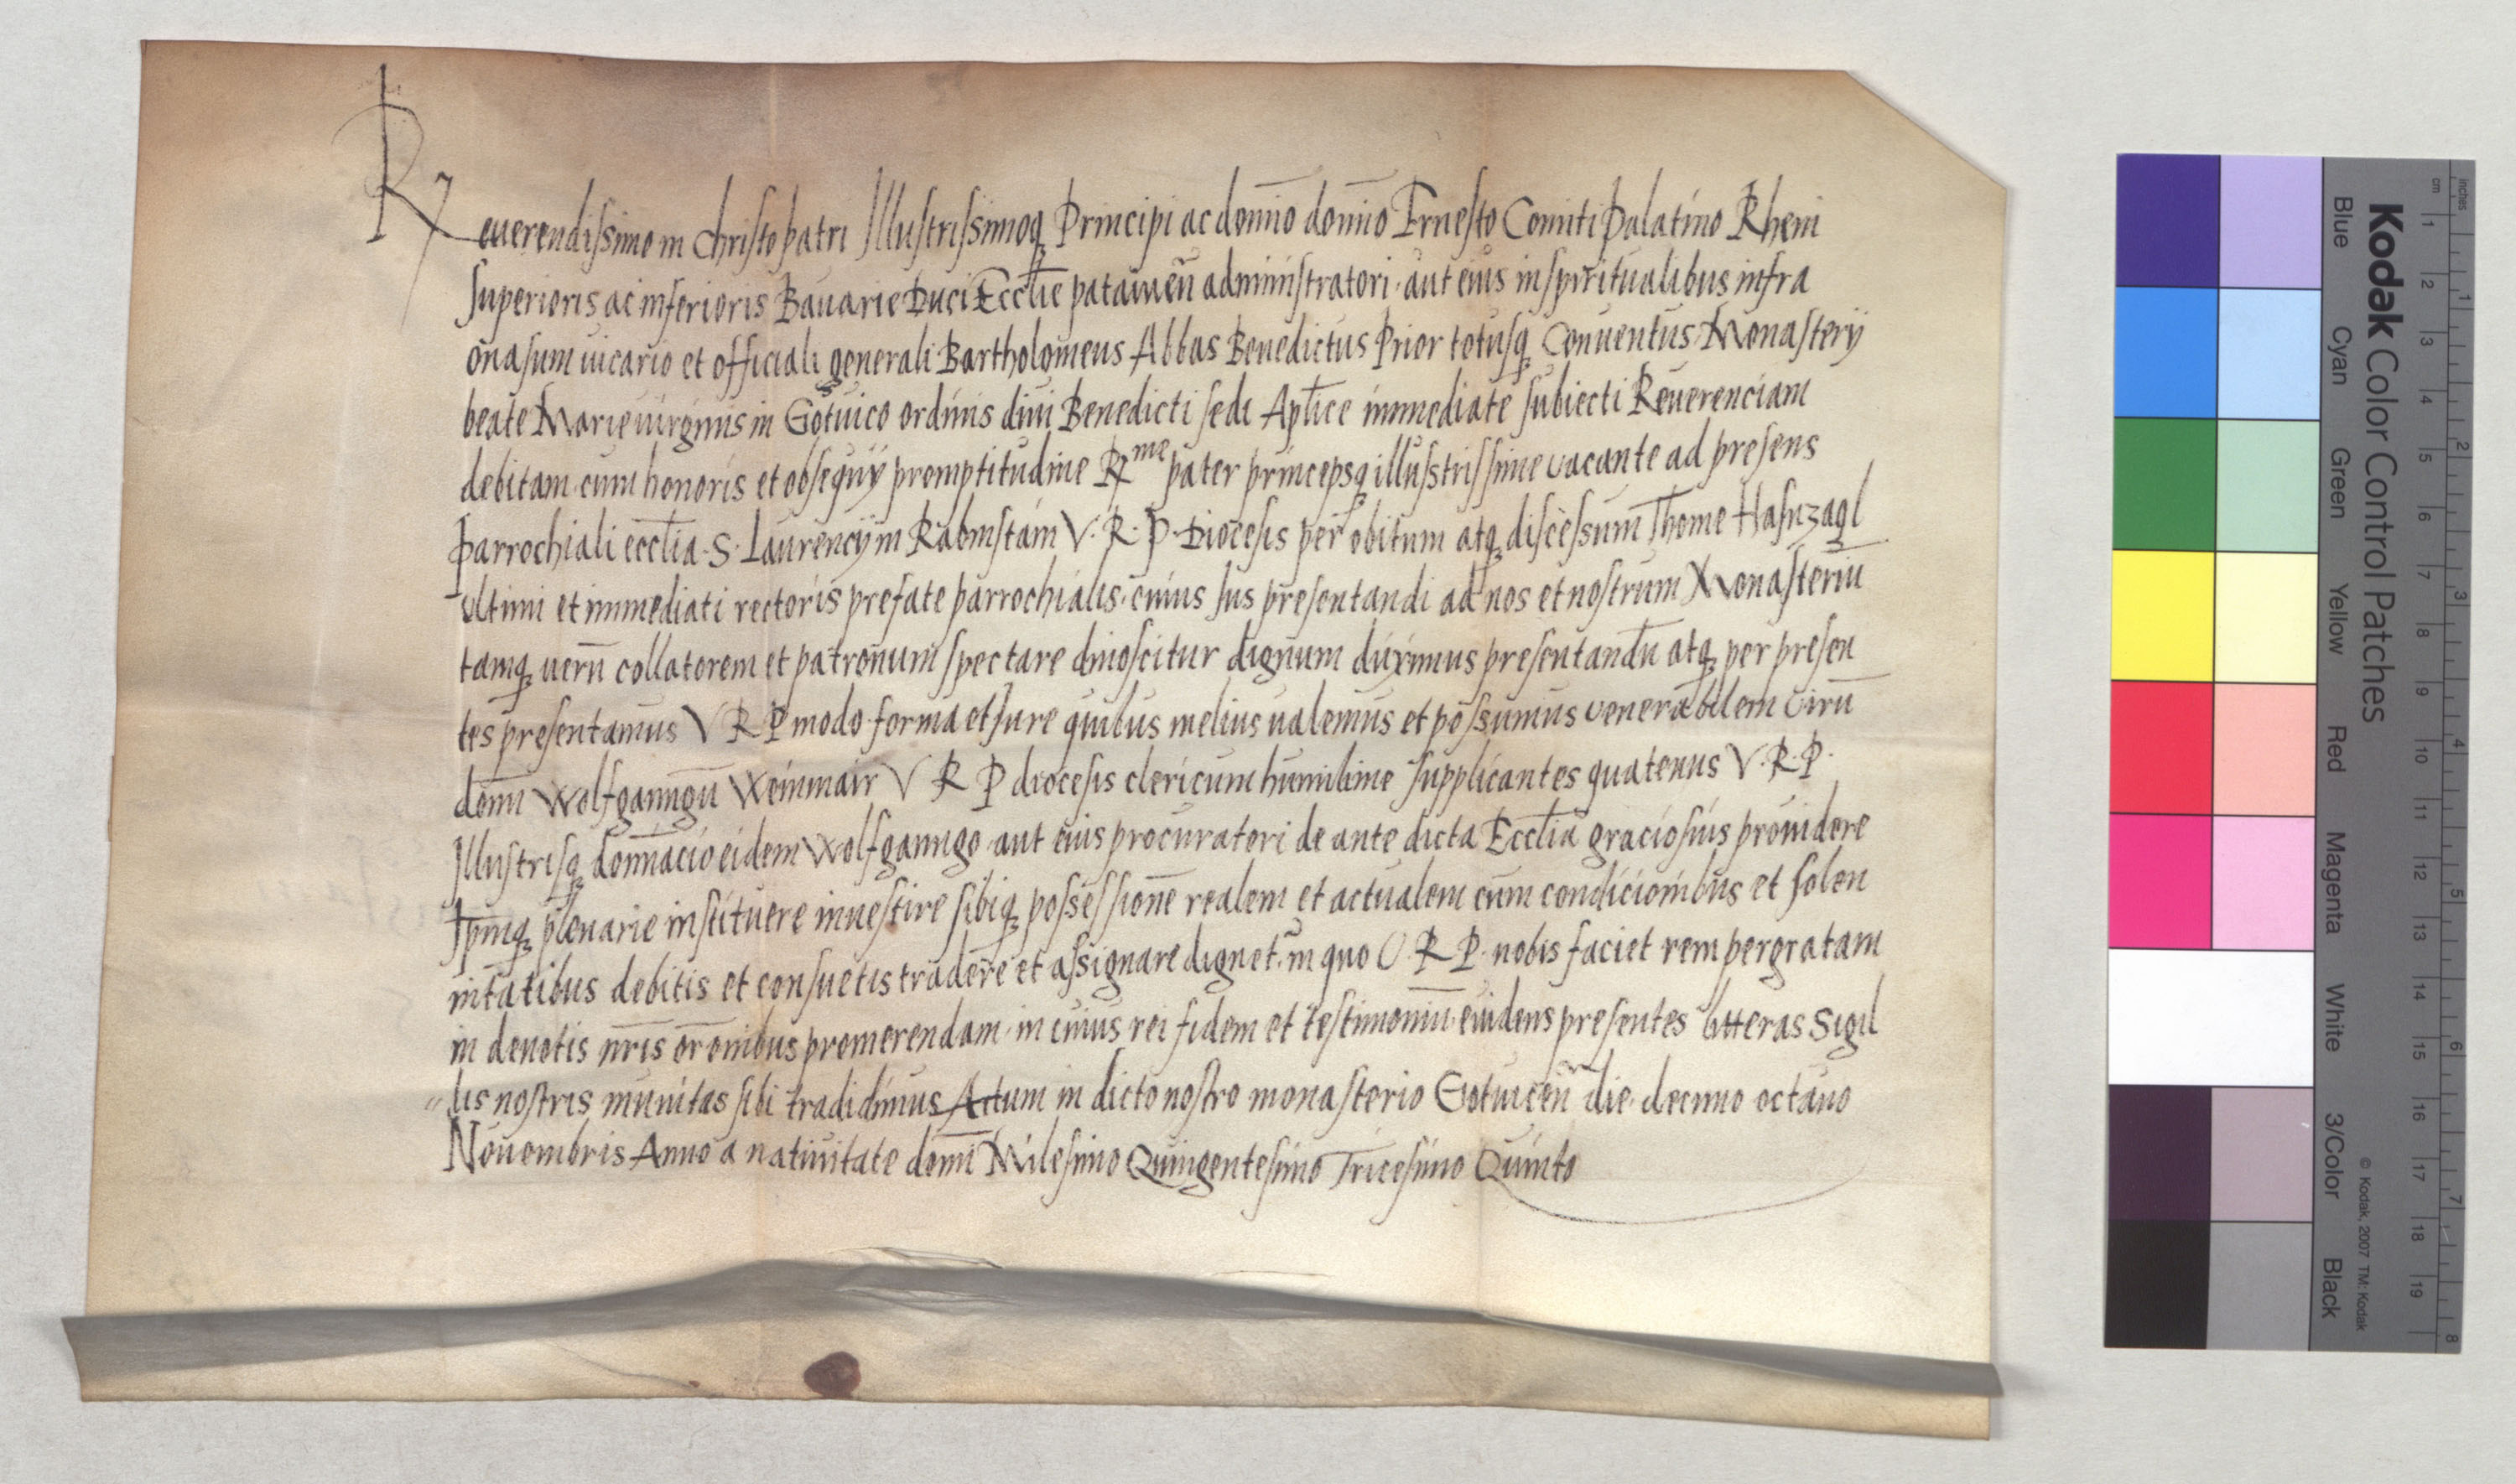 Reuerendissimo in Christo patri Illustrissimoq; Principi ac domīo domīo Ernesto Comiti Palatino Rheni
superioris ac inferioris Bauarie Duci Eccl̄ie patauieñ administratori aut eius in spiritualibus infra
onasum uicario et officiali generali Bartholomeus Abbas Benedictus Prior totusq; Conuentus Monasterij
beate Marie uirginis in Gotuico ordinis diui Benedicti sedi Apl̄ice immediate subiecti Reuerenciam
debitam cum honoris et obsequij promptitudine Rme pater princepsq; illusstrissime vacante ad presens
parrochiali eccl̄ia S. Laurencij in Rabnstain V. R. P. Diocesis per obitum atq; discessum Thome Hafnzagl
vltimi et immediati rectoris prefate parrochialis cuius Jus presentandi ad nos et nostrum Monasteriū
tamq; uerū collatorem et patronum spectare dinoscitur dignum duximus presentandū atq; per presen
tes presentamus V R P modo forma et Jure quibus melius ualemus et possumus venerabilem virū
domī Wolfganngū Weinmair V R P diocesis clericum humilime supplicantes quatenus V. R. P.
Illustrisq; domīacio eidem Wolfganngo aut eius procuratori de ante dicta Eccl̄ia graciosius prouidere
Ipm̄q; plenarie instituere inuestire sibiq; possessionē realem et actualem cum condicionibus et solen
nitatibus debitis et consuetis tradere et assignare dignet. in quo V. R. P. nobis faciet rem pergratam
in deuotis nr̄is or̄onibus promerendam in cuius rei fidem et testimoniū euidens presentes litteras Sigil
lis nostris munitas sibi tradidimus Actum in dicto nostro monasterio Gotuiceñ die decimo octauo
Nouembris Anno a natiuitate domī Milesimo Quingentesimo Tricesimo Quinto
Kodak Color Control Patches
Blue Cyan Green Yellow Red Magenta White 3/Color Black
© Kodak, 2007 TM: Kodak
cm 1 2 3 4 5 6 7 8 9 10 11 12 13 14 15 16 17 18 19
inches 1 2 3 4 5 6 7 8